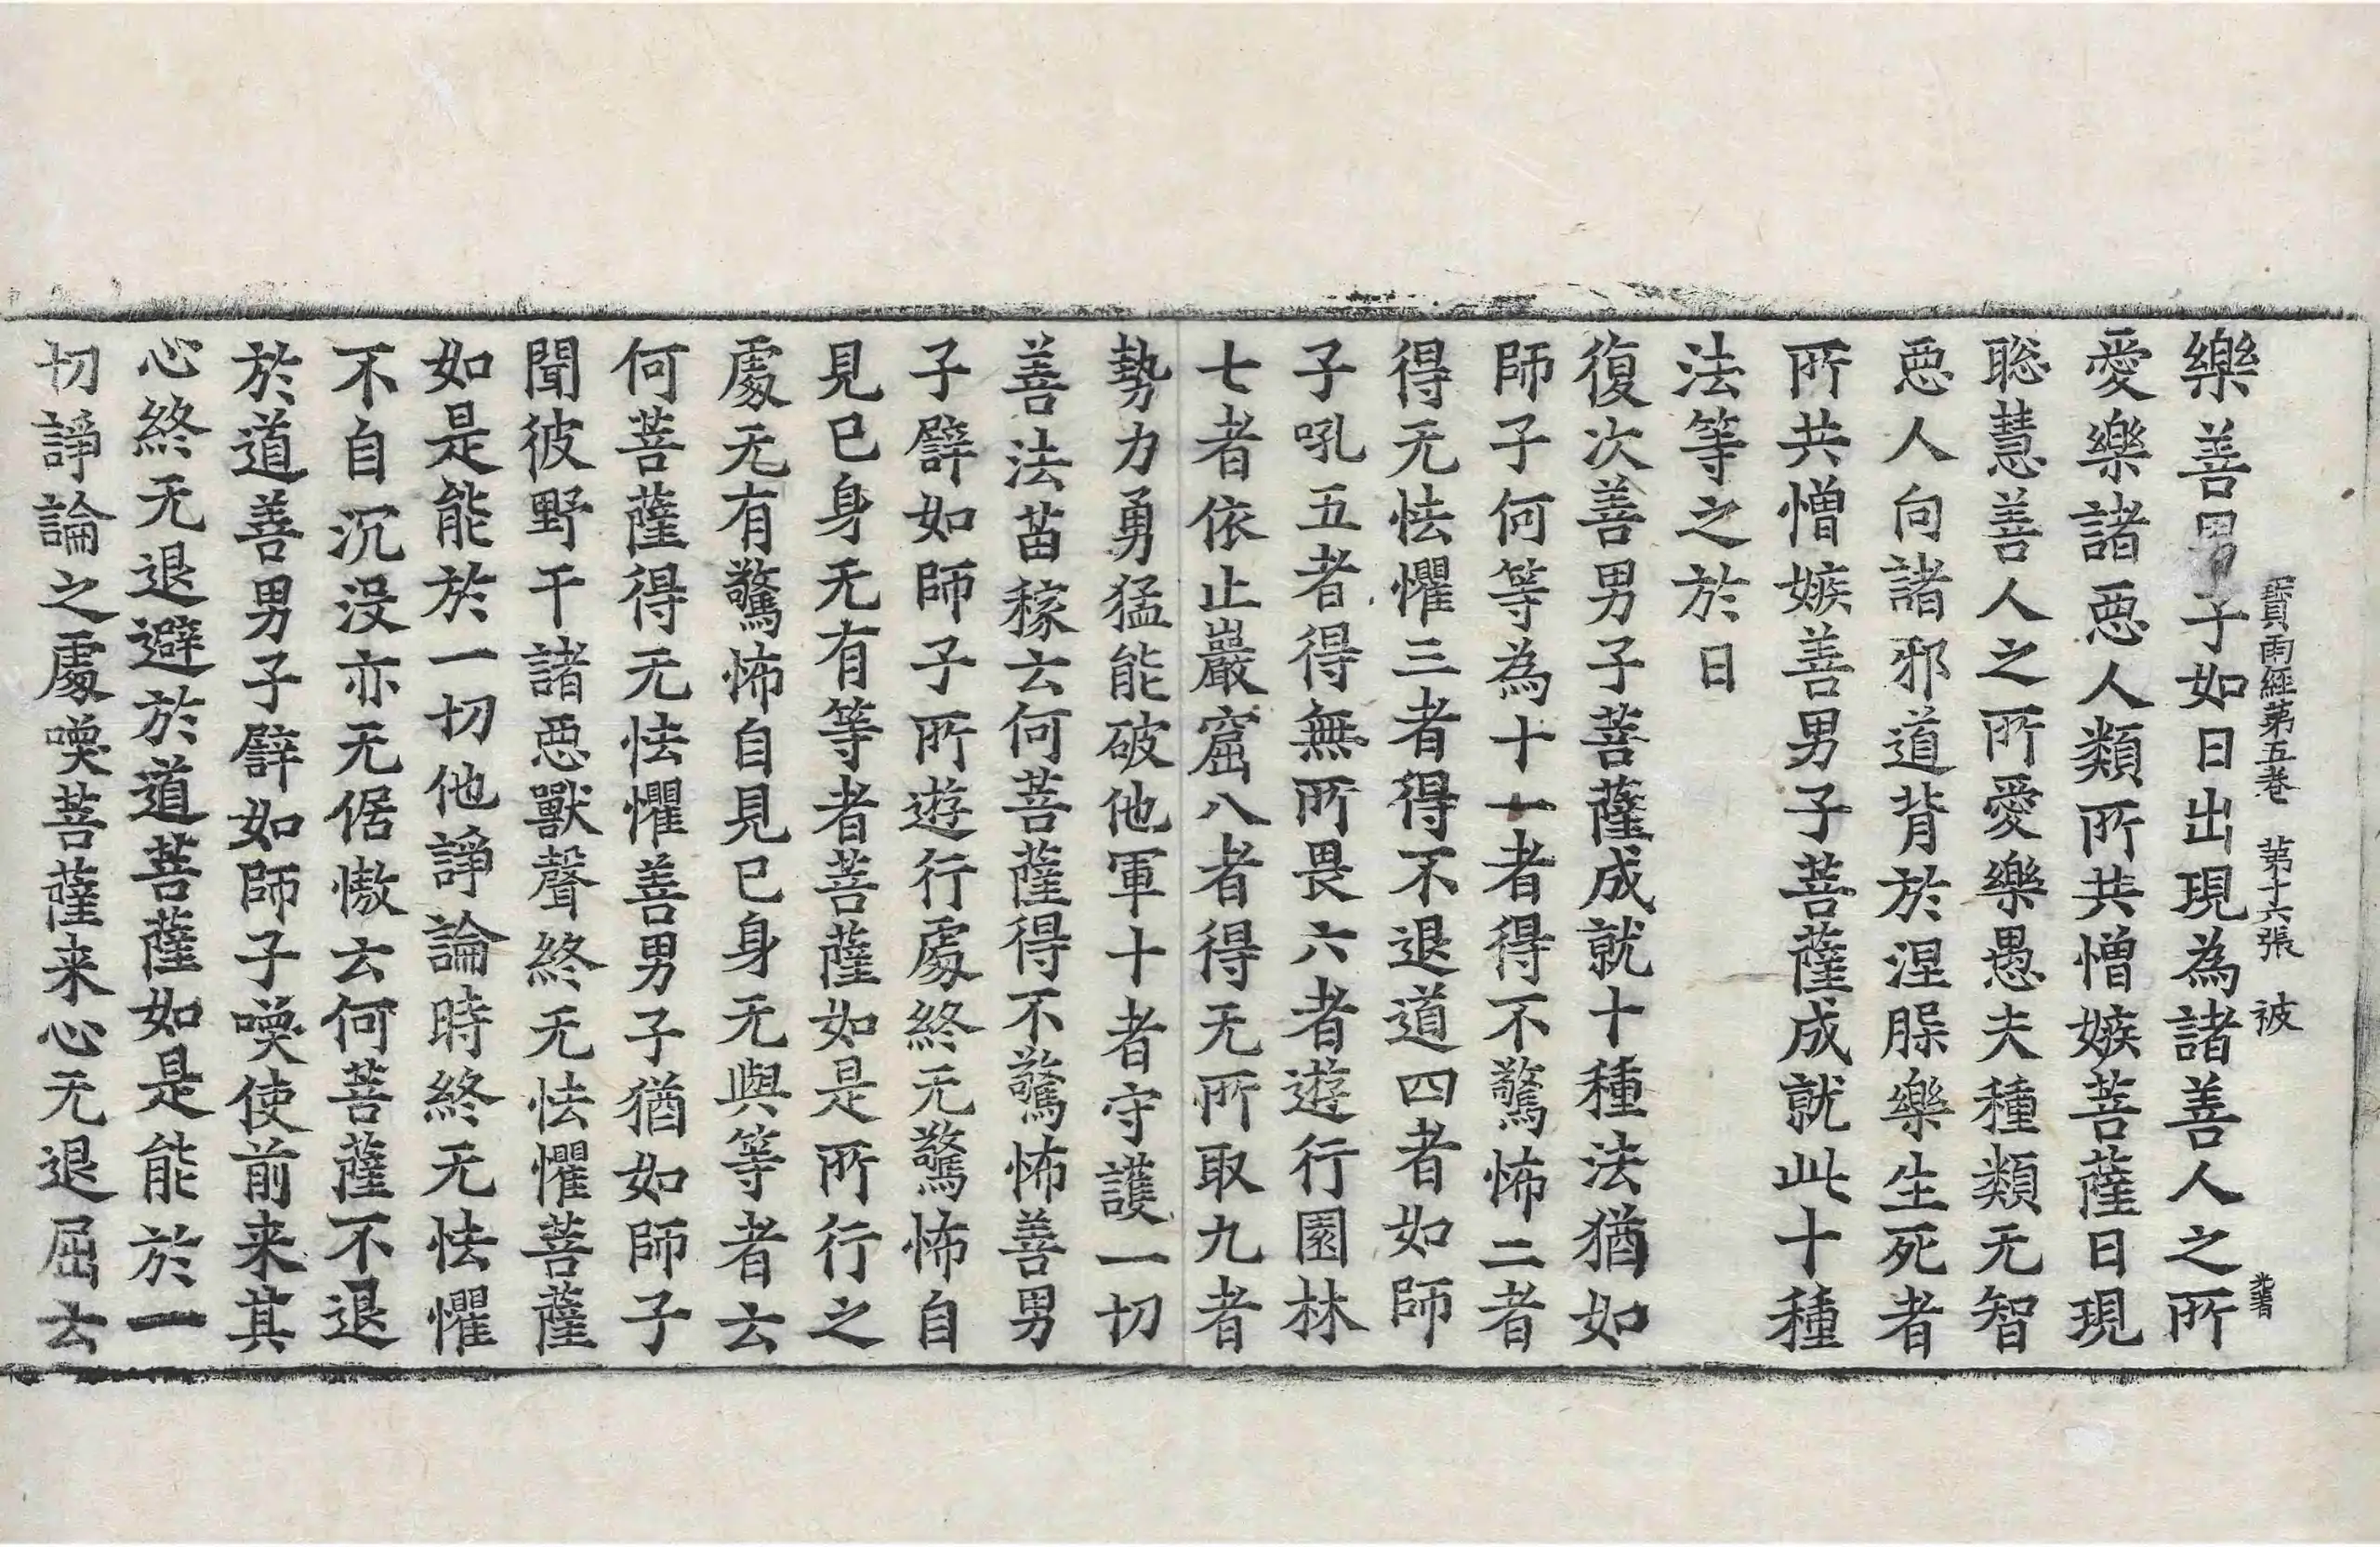 寶雨經第五卷 第十六張 被
樂善男子如日出現為諸善人之所
愛樂諸惡人類所共憎嫉菩薩日現
聡慧善人之所愛樂愚夫種類无智
惡人向諸邪道背於涅槃樂生死者
所共憎嫉善男子菩薩成就此十種
法等之於日
復次善男子菩薩成就十種法猶如
師子何等為十一者得不驚怖二者
得无怯懼三者得不退道四者如師
子吼五者得無所畏六者遊行園林
七者依止巖窟八者得无所取九者
勢力勇猛能破他軍十者守護一切
善法苗稼云何菩薩得不驚怖善男
子譬如師子所遊行處終无驚怖自
見已身无有等者菩薩如是所行之
處无有驚怖自見已身无與等者云
何菩薩得无怯懼善男子猶如師子
聞彼野干諸惡獸聲終无怯懼菩薩
如是能於一切他諍論時終无怯懼
不自沉没亦无倨慠云何菩薩不退
於道善男子譬如師子喚使前来其
心終无退避於道菩薩如是能於一
切諍論之處喚菩薩来心无退屈云